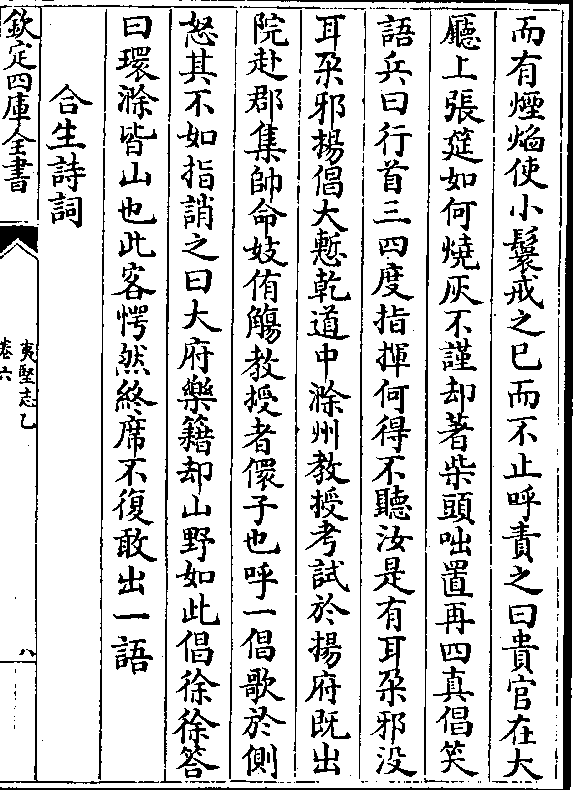 而有煙焰使小鬟戒之已而不止呼責之曰貴官在大
廳上張筵如何燒灰不謹却著柴頭咄置再四真倡笑
語兵曰行首三四度指揮何得不聽汝是有耳朶邪没
耳朶邪揚倡大慙乾道中滁州教授考試於揚府既出
院赴郡集帥命妓侑觴教授者儇子也呼一倡歌於側
怒其不如指誚之曰大府樂籍却山野如此倡徐徐答
曰環滁皆山也此客愕然終席不復敢出一語
合生詩詞
欽定四庫全書
夷堅志乙
卷六
八